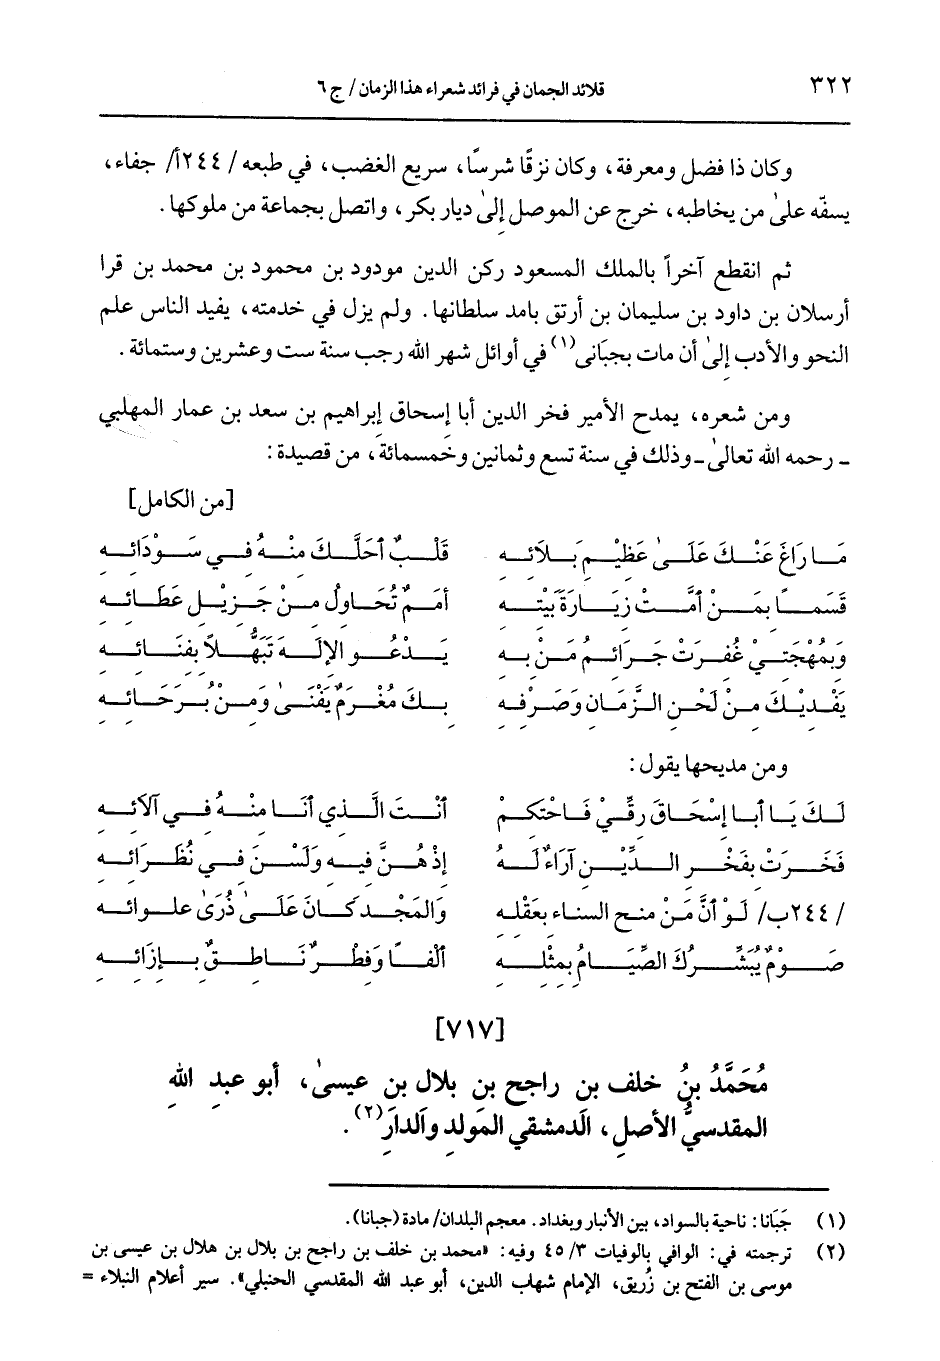 ٣٢٢ قلائد الجمان في فرائد شعراء هذا الزمان / ج ٦
وكان ذا فضل ومعرفة، وكان نزقًا شرسًا، سريع الغضب، في طبعه /٢٤٤أ/ جفاء،
يسفّه علىٰ من يخاطبه، خرج عن الموصل إلىٰ ديار بكر، واتصل بجماعة من ملوكها.
ثم انقطع آخراً بالملك المسعود ركن الدين مودود بن محمود بن محمد بن قرا
أرسلان بن داود بن سليمان بن أرتق بامد سلطانها. ولم يزل في خدمته، يفيد الناس علم
النحو والأدب إلىٰ أن مات بجبّانى(١) في أوائل شهر الله رجب سنة ست وعشرين وستمائة.
ومن شعره، يمدح الأمير فخر الدين أبا إسحاق إبراهيم بن سعد بن عمار المهلبي
ـ رحمه الله تعالىٰ ـ وذلك في سنة تسع وثمانين وخمسمائة، من قصيدة:
[من الكامل]
مَا رَاغَ عَنْكَ عَلَىٰ عَظِيْمِ بَلَائِهِ قَلْبٌ أحَلَّكَ مِنْهُ فِي سَوْدَائِهِ
قَسَمًا بِمَنْ أمَّتْ زِيَارَةَ بَيْتِهِ أُمَمٌ تُحَاوِلُ مِنْ جَزِيْلِ عَطَائِهِ
وَبِمُهْجَتِيْ غُفِرَتْ جَرَائِمُ مَنْ بِهِ يَدْعُو الإلَهَ تَبَهُّلاً بِفَنَائِهِ
يَفْدِيْكَ مِنْ لَحْنِ الزَّمَانِ وَصَرْفِهِ بِكَ مُغْرَمٌ يَفْنَىٰ وَمِنْ بُرَحَائِهِ
ومن مديحها يقول:
لَكَ يَا أبَا إسْحَاقَ رِقِّيْ فَاحْتَكِمْ أنْتَ الَّذِي أنَا مِنْهُ فِي آلَائِهِ
فَخَرَتْ بِفَخْرِ الدِّيْنِ آرَاءٌ لَهُ إذْ هُنَّ فِيهِ وَلَسْنَ فِي نُظَرَائِهِ
/٢٤٤ب/ لَوْ أنَّ مَنْ منح السناء بعَقْلِهِ وَالمَجْدِ كَانَ عَلَىٰ ذُرَىٰ علوائِهِ
صَوْمٌ يُبَشِّرُكَ الصِّيَامُ بِمِثْلِهِ ألْفًا وَفِطْرٌ نَاطِقٌ بِإزَائِهِ
[٧١٧]
مُحَمَّدُ بنُ خلفِ بن راجحِ بنِ بلالِ بنِ عيسىٰ، أبو عبدِ اللهِ
المقدسيُّ الأصلِ، الدمشقي المَولدِ والدارِ(٢).
(١) جَبَانا: ناحية بالسواد، بين الأنبار وبغداد. معجم البلدان/ مادة (جبانا).
(٢) ترجمته في: الوافي بالوفيات ٣/ ٤٥ وفيه: «محمد بن خلف بن راجح بن بلال بن هلال بن عيسى بن
موسى بن الفتح بن زُريق، الإمام شهاب الدين، أبو عبد الله المقدسي الحنبلي». سير أعلام النبلاء =